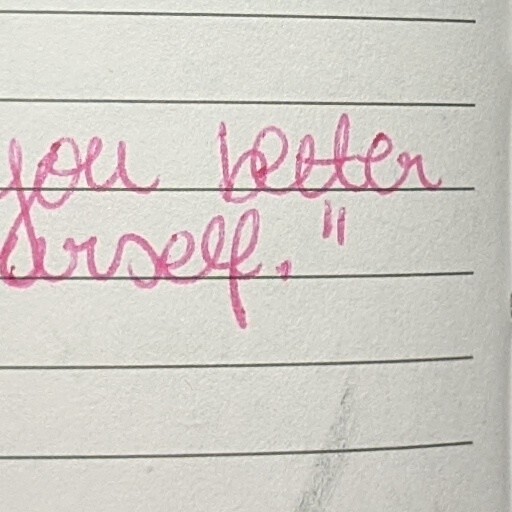 you better
urself."